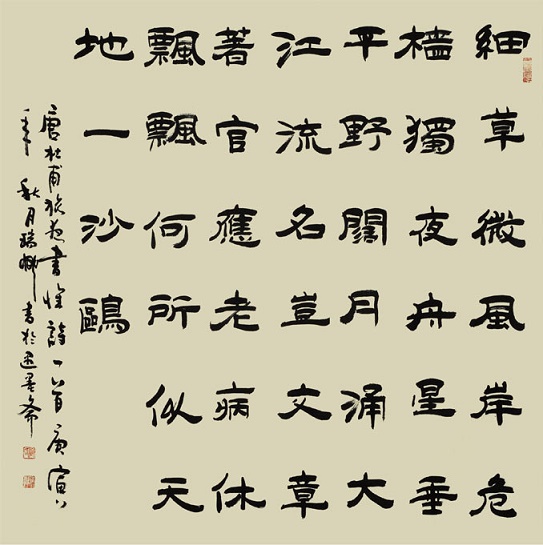 細草微風岸危
檣獨夜舟星垂
平野闊月涌大
江流名豈文章
著官應老病休
飄飄何所似天
地一沙鷗
唐杜甫旅夜書懷詩一首庚寅
年秋月書於墨齋